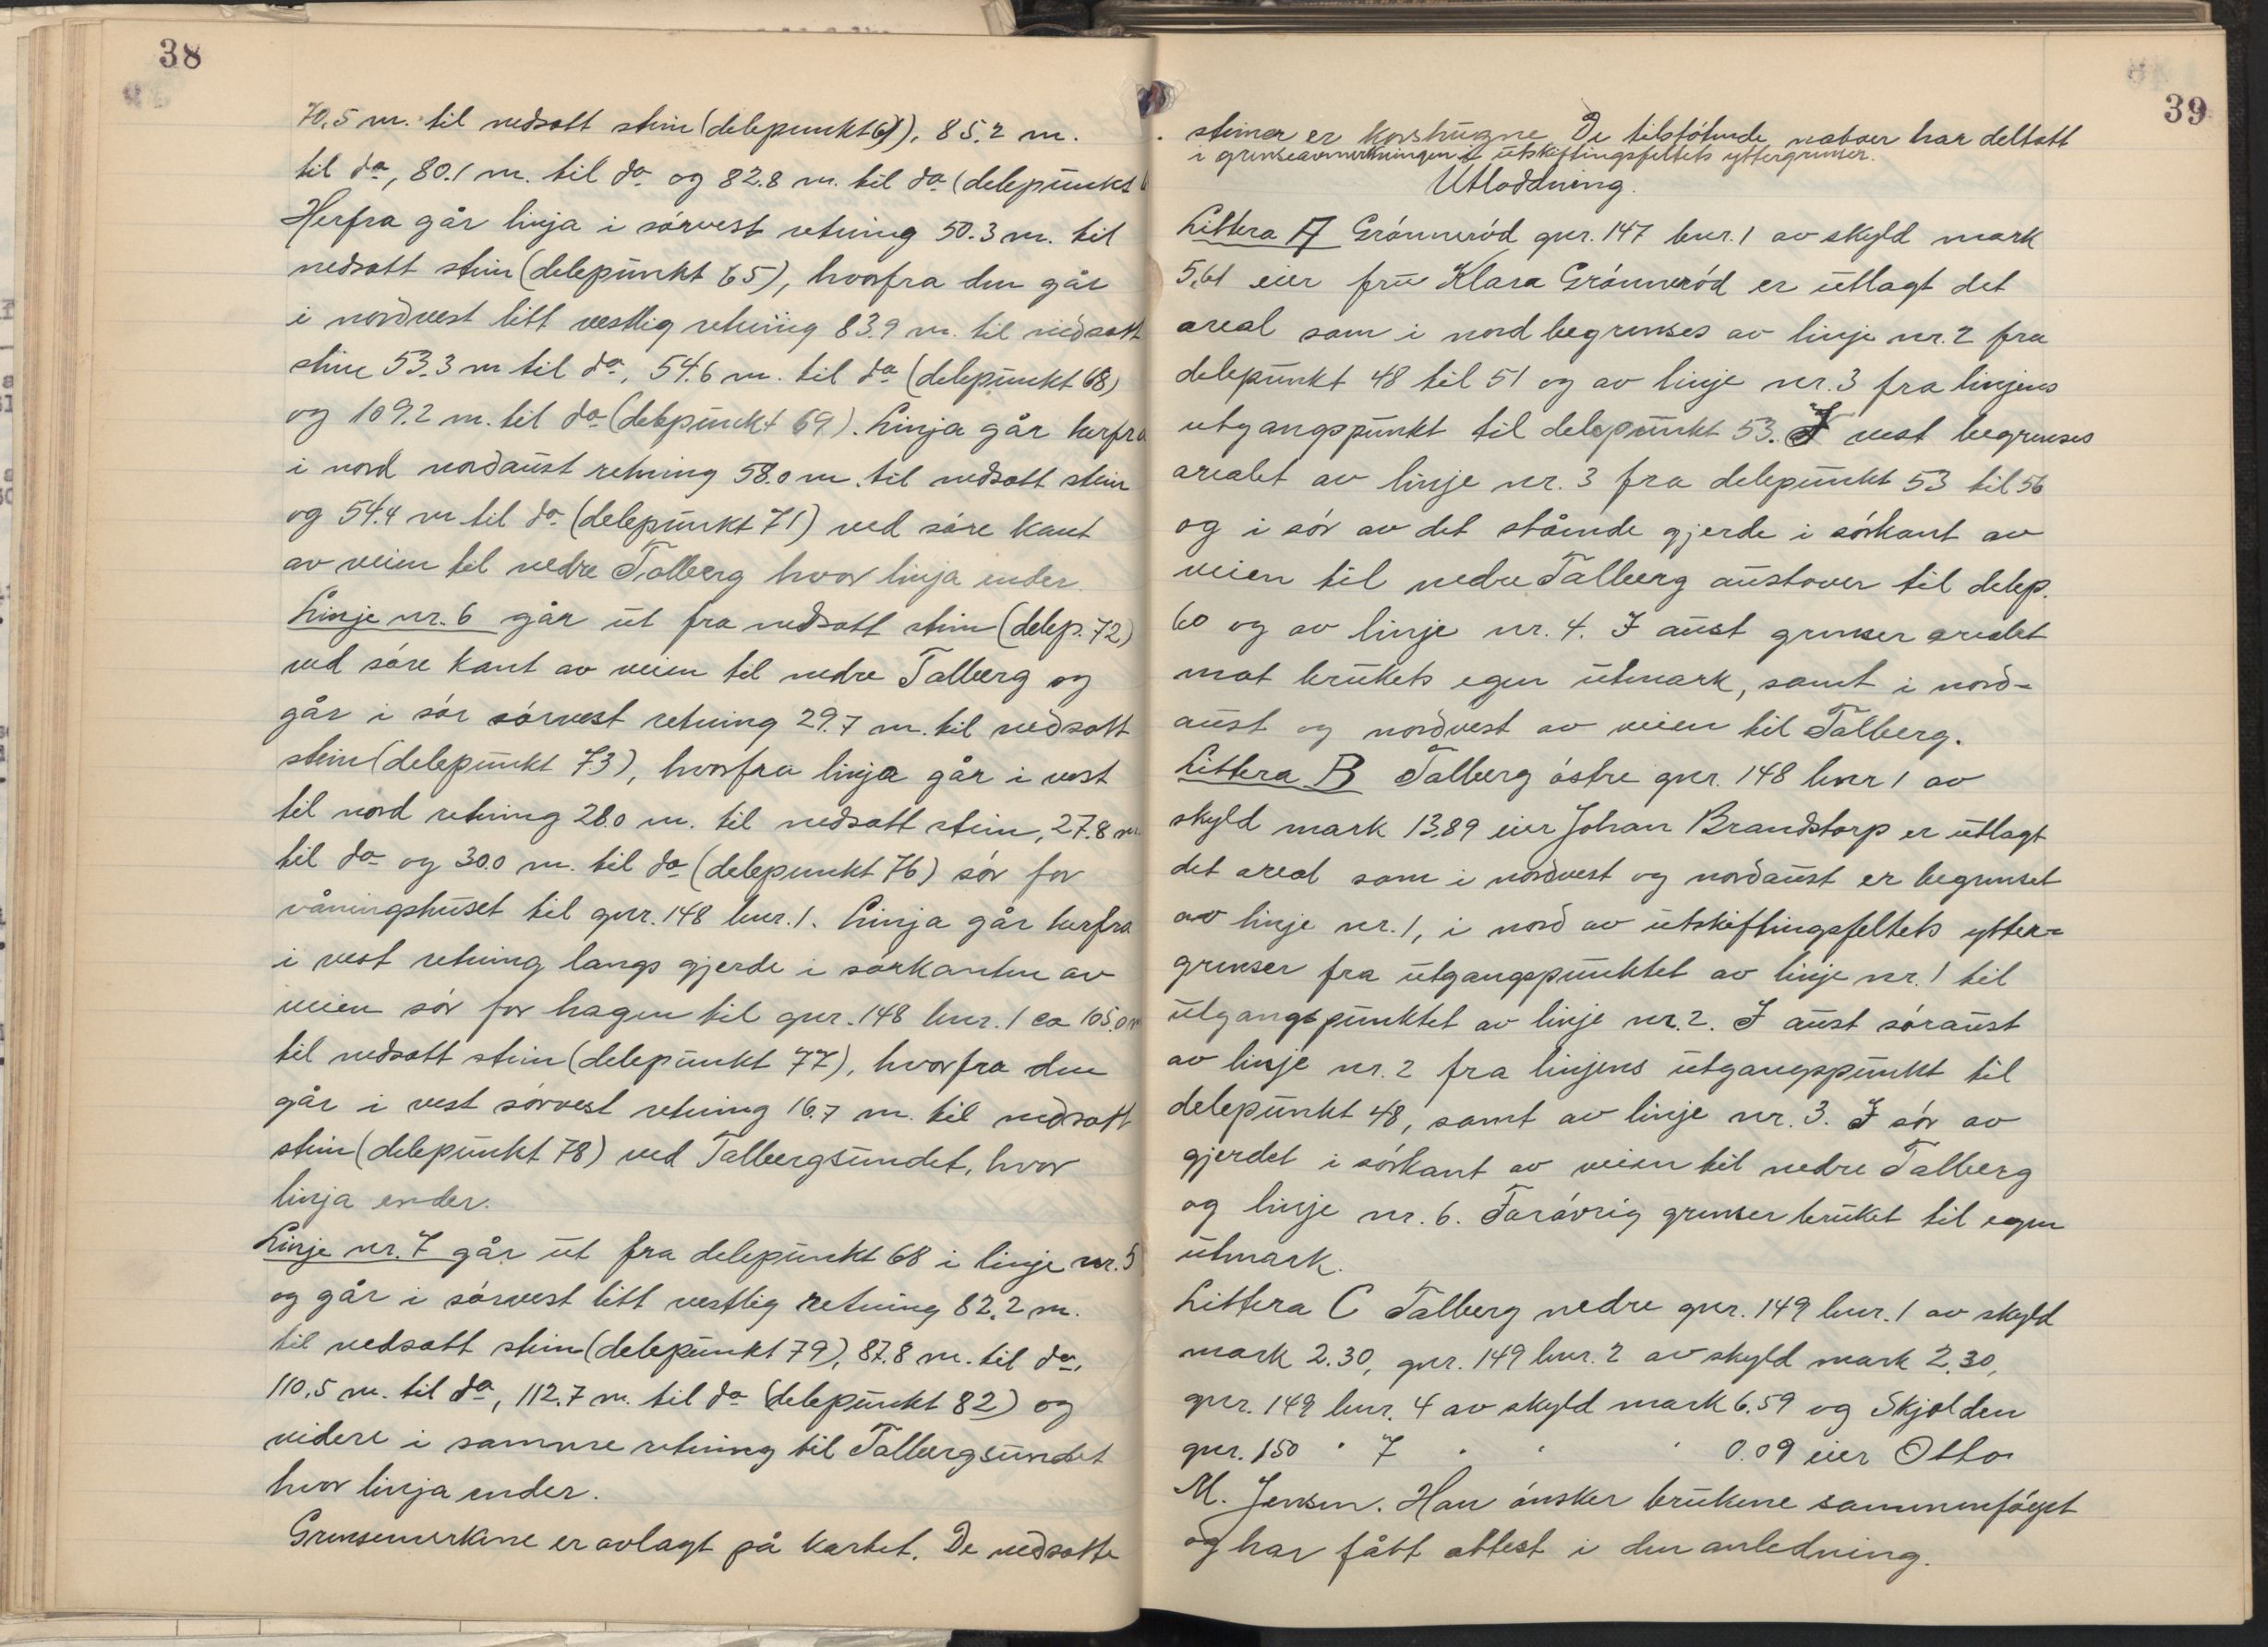 38
70,5 m. til nedsatt stein (delepunkt 61), 85.2 m.
til do, 80.1 m. til do og 82.8 m. til do (delepunkt
Herfra går linja i sørvest retning 50.3 m. til
nedsatt stein (delepunkt 65), hvorfra den går
i nordvest litt vestlig retning 83.9 m. til nedsatt
stein 53.3 m til do, 54.6 m. til do (delepunkt 68)
og 109.2 m. til do (delepunkt 69). Linja går herfra
i nord nordaust retning 58.0 m. til nedsatt stein
og 54.4 m til do (delepunkt 71) ved søre kant
av veien til nedre Talberg hvor linja ender.
Linje nr. 6 går ut fra nedsatt stein (delep. 72)
ved søre kant av veien til nedre Talberg og
går i sør sørvest retning 29.7 m. til nedsatt
stein (delepunkt 73), hvorfra linja går i vest
til nord retning 28.0 m. til nedsatt stein, 27.8 m.
til do og 30.0 m. til do (delepunkt 76) sør for
våningshuset til gnr. 148 bnr. 1. Linja går herfra
i vest retning langs gjerde i sørkanten av
veien sør for hagen til gnr. 148 bnr. 1 ca 105.0 m
til nedsatt stein (delepunkt 77), hvorfra den
går i vest sørvest retning 16.7 m. til nedsatt
stein (delepunkt 78) ved Talbergsundet, hvor
linja ender.
Linje nr. 7 går ut fra delepunkt 68 i linje nr. 5
og går i sørvest litt vestlig retning 82.2 m.
til nedsatt stein (delepunkt 79), 87.8 m. til do,
110.5 m. til do, 112.7 m. til do (delepunkt 82) og
videre i samme retning til Talbergsundet
hvor linja ender.
Grensemerkene er avlagt på kartet. De nedsatte
39
steiner er korshugne. De tilstøtende naboer har deltatt
i grenseavmerkningen i utskiftingsfeltets yttergrenser.
Utloddning.
Littera A Grønnerød gnr. 147 bnr. 1 av skyld mark
5,61 eier fru Klara Grønnerød er utlagt det
areal som i nord begrenses av linje nr. 2 fra
delepunkt 48 til 51 og av linje nr. 3 fra linjens
utgangspunkt til delepunkt 53. I vest begrenses
arealet av linje nr. 3 fra delepunkt 53 til 56
og i sør av det stående gjerde i sørkant av
veien til nedre Talberg austover til delep.
60 og av linje nr. 4. I aust grenser arealet
mot brukets egen utmark, samt i nord-
aust og nordvest av veien til Talberg.
Littera B Talberg østre gnr. 148 bnr 1 av
skyld mark 13.89 eier Johan Brandstorp er utlagt
det areal som i nordvest og nordaust er begrenset
av linje nr. 1, i nord av utskiftingsfeltets ytter=
grenser fra utgangspunktet av linje nr. 1 til
utgangspunktet av linje nr. 2. I aust søraust
av linje nr. 2 fra linjens utgangspunkt til
delepunkt 48, samt av linje nr. 3. I sør av
gjerdet i sørkant av veien til nedre Talberg
og linje nr. 6. Forøvrig grenser bruket til egen
utmark.
Littera C Talberg nedre gnr. 149 bnr. 1 av skyld
mark 2.30, gnr. 149 bnr. 2 av skyld mark 2.30,
gnr. 149 bnr. 4 av skyld mark 6.59 og Skjolden
gnr. 150 " 7 " " " 0.09 eier Otto
M. Jensen. Han ønsker brukene sammenføyet
og har fått attest i den anledning.